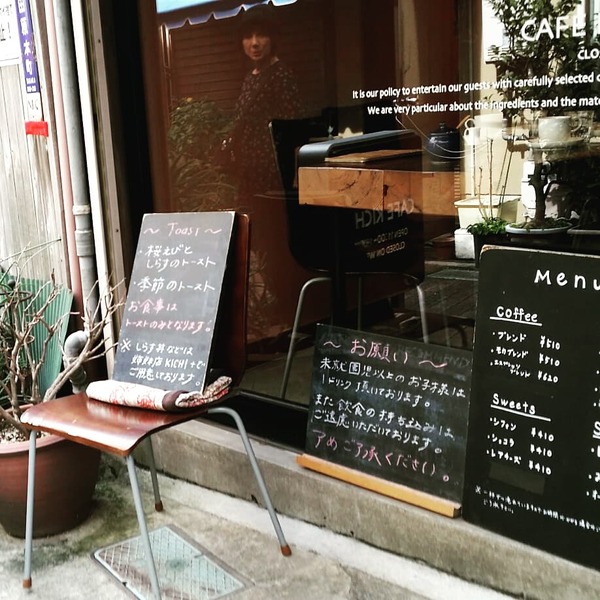 CAFE
CLO
It is our policy to entertain our guests with carefully selected
We are very particular about the ingredients and the mate
CAFE KICHI
～ Toast ～
・桜えびと
しらすのトースト
・季節のトースト
お食事は
トーストのみとなります。
※ しらす丼などは
姉妹店 KICHI+で
ご用意しております。
～ お願い ～
未就園児以上のお子様は
1ドリンク頂いております。
また飲食の持ち込みは
ご遠慮いただいております。
予めご了承ください。
Menu
Coffee
・ブレンド ¥510
¥510
¥620
Sweets
・シフォン ¥410
・ショコラ ¥410
・レアチーズ ¥410